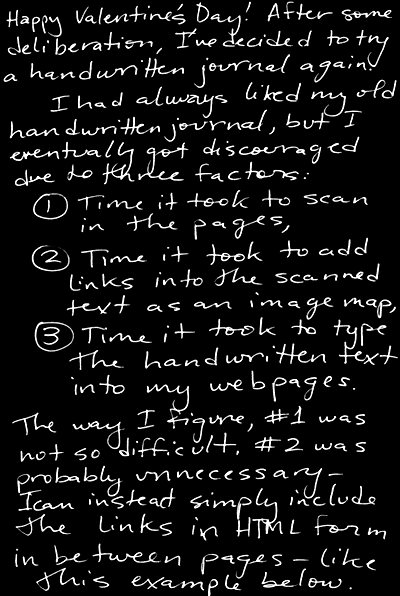 Happy Valentine's Day! After some
deliberation, I've decided to try
a handwritten journal again.
I had always liked my old
handwritten journal, but I
eventually got discouraged
due to three factors:
① Time it took to scan
in the pages,
② Time it took to add
links into the scanned
text as an image map,
③ Time it took to type
the handwritten text
into my webpages.
The way I figure, #1 was
not so difficult. #2 was
probably unnecessary –
I can instead simply include
the links in HTML form
in between pages – like
this example below.